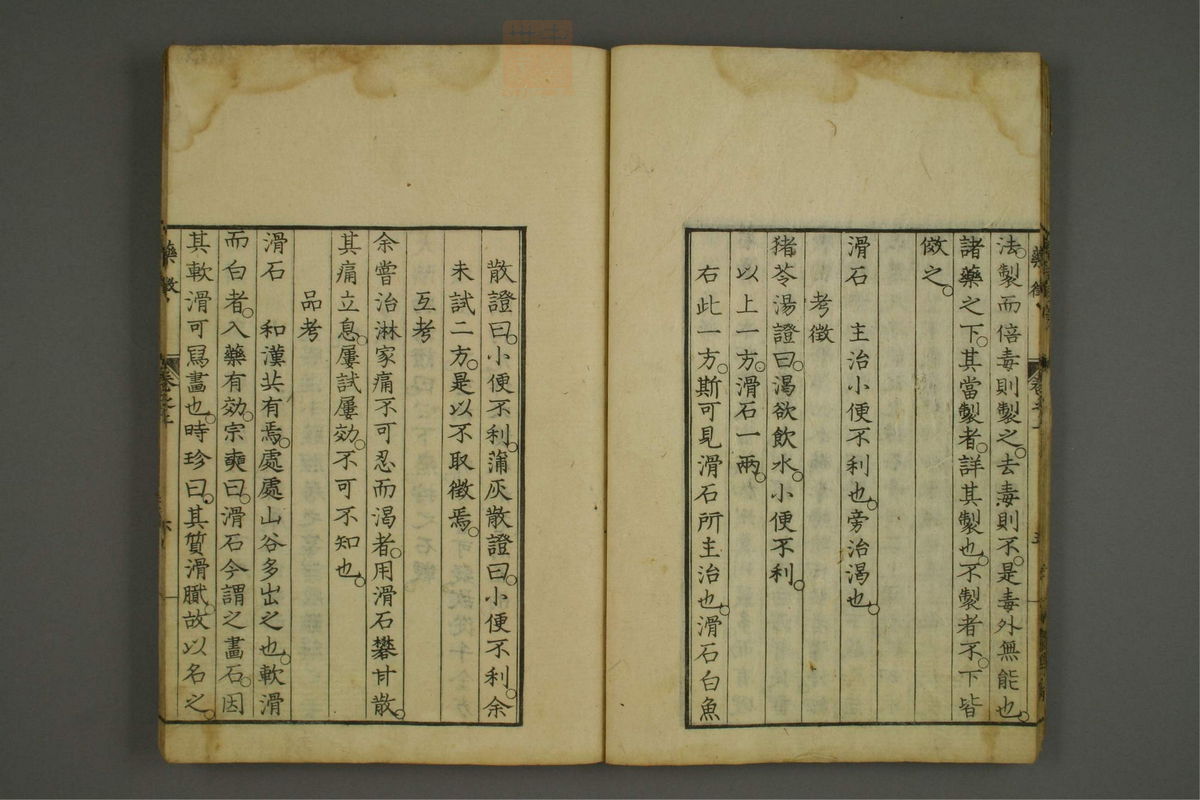 法製而倍毒則製之。去毒則不。是毒外無能也。
諸藥之下。其當製者。詳其製也。不製者不下皆
倣之。
滑石　主治小便不利也。旁治渴也。
考徵
猪苓湯證曰。渴欲飲水。小便不利。
以上一方。滑石一兩。
右此一方。斯可見滑石所主治也。滑石白魚
散證曰。小便不利。蒲灰散證曰。小便不利。余
未試二方。是以不取徵焉。
互考
余嘗治淋家痛不可忍而渴者。用滑石礬甘散。
其痛立息。屢試屢効。不可不知也。
品考
滑石　和漢共有焉。處處山谷多出之也。軟滑
而白者。入藥有効。宗奭曰。滑石今謂之畫石。因
其軟滑可爲畫也。時珍曰。其質滑膩。故以名之。
藥徵